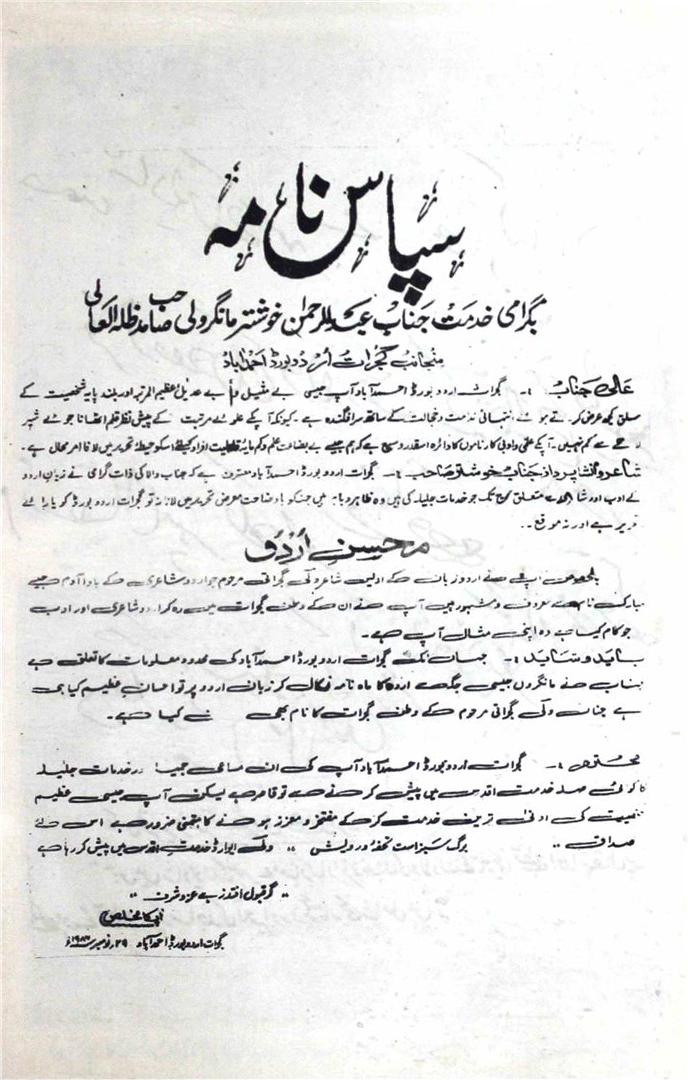 سپاس نامہ
بگرامی خدمت جناب عبدالرحمٰن خوشتر مانگرولی صاحب مدظلہ العالی
منجانب گجرات اردو بورڈ احمدآباد
عالی جناب :- گجرات اردو بورڈ احمدآباد آپ جیسی بے مثیل و بے عدیل عظیم المرتبہ اور بلند پایہ شخصیت کے
متعلق کچھ عرض کرتے ہوئے انتہائی ندامت و خجالت کے ساتھ سرافگندہ ہے۔ کیونکہ آپکے علوئے مرتبت کے پیش نظر قلم اٹھانا جوئے شیر
سے کم نہیں۔ آپکے علمی و ادبی کارناموں کا دائرہ اسقدر وسیع ہے کہ ہم جیسے بے بضاعت علم و کم مایہ قابلیت افراد کیلئے اسکو حیطۂ تحریر میں لانا امر محال ہے۔
شاعر و انشا پرداز جناب خوشتر صاحب :- گجرات اردو بورڈ احمدآباد معترف ہے کہ جناب والا کی ذات گرامی نے زبان اردو
کے ادب اور متعلق آج تک جو خدمات جلیلہ کی ہیں وہ ظاہر و باہر ہیں جنکو با وضاحت معرض تحریر میں لانا نہ تو گجرات اردو بورڈ کو یارائے
تحریر ہے اور نہ موقع۔۔
محسنِ اردو
بالخصوص آپ نے اردو زبان کے اولین شاعر ولی گجراتی مرحوم جو اردو شاعری کے باوا آدم جیسے
مبارک نام سے معروف و مشہور ہیں آپ نے ان کے وطن گجرات میں رہ کر اردو شاعری اور ادب
جو کام کیا ہے وہ اپنی مثال آپ ہے۔
باید و شاید :- جہاں تک گجرات اردو بورڈ احمدآباد کی محدود معلومات کا تعلق ہے
جناب نے مانگرول جیسی جگہ سے اردو کا ماہ نامہ نکال کر زبان اردو پر تو احسانِ عظیم کیا ہی
ہے جناب ولی گجراتی مرحوم کے وطن گجرات کا نام بھی کیا ہے۔
محترم :- گجرات اردو بورڈ احمدآباد آپ کی ان مساعی جمیلہ اور خدمات جلیلہ
کا کوئی صلہ خدمت اقدس میں پیش کرنے سے تو قاصر ہے لیکن آپ جیسی عظیم
شخصیت کی ادنیٰ ترین خدمت کر کے مفتخر و معزز ہونے کا متمنی ضرور ہے اس لئے
مصداق " برگ سبز است تحفۂ درویش " ولی ایوارڈ خدمت اقدس میں پیش کر رہا ہے
" گر قبول افتد زہے عز و شرف "
آپکا مخلص
گجرات اردو بورڈ احمدآباد ۲۹ نومبر